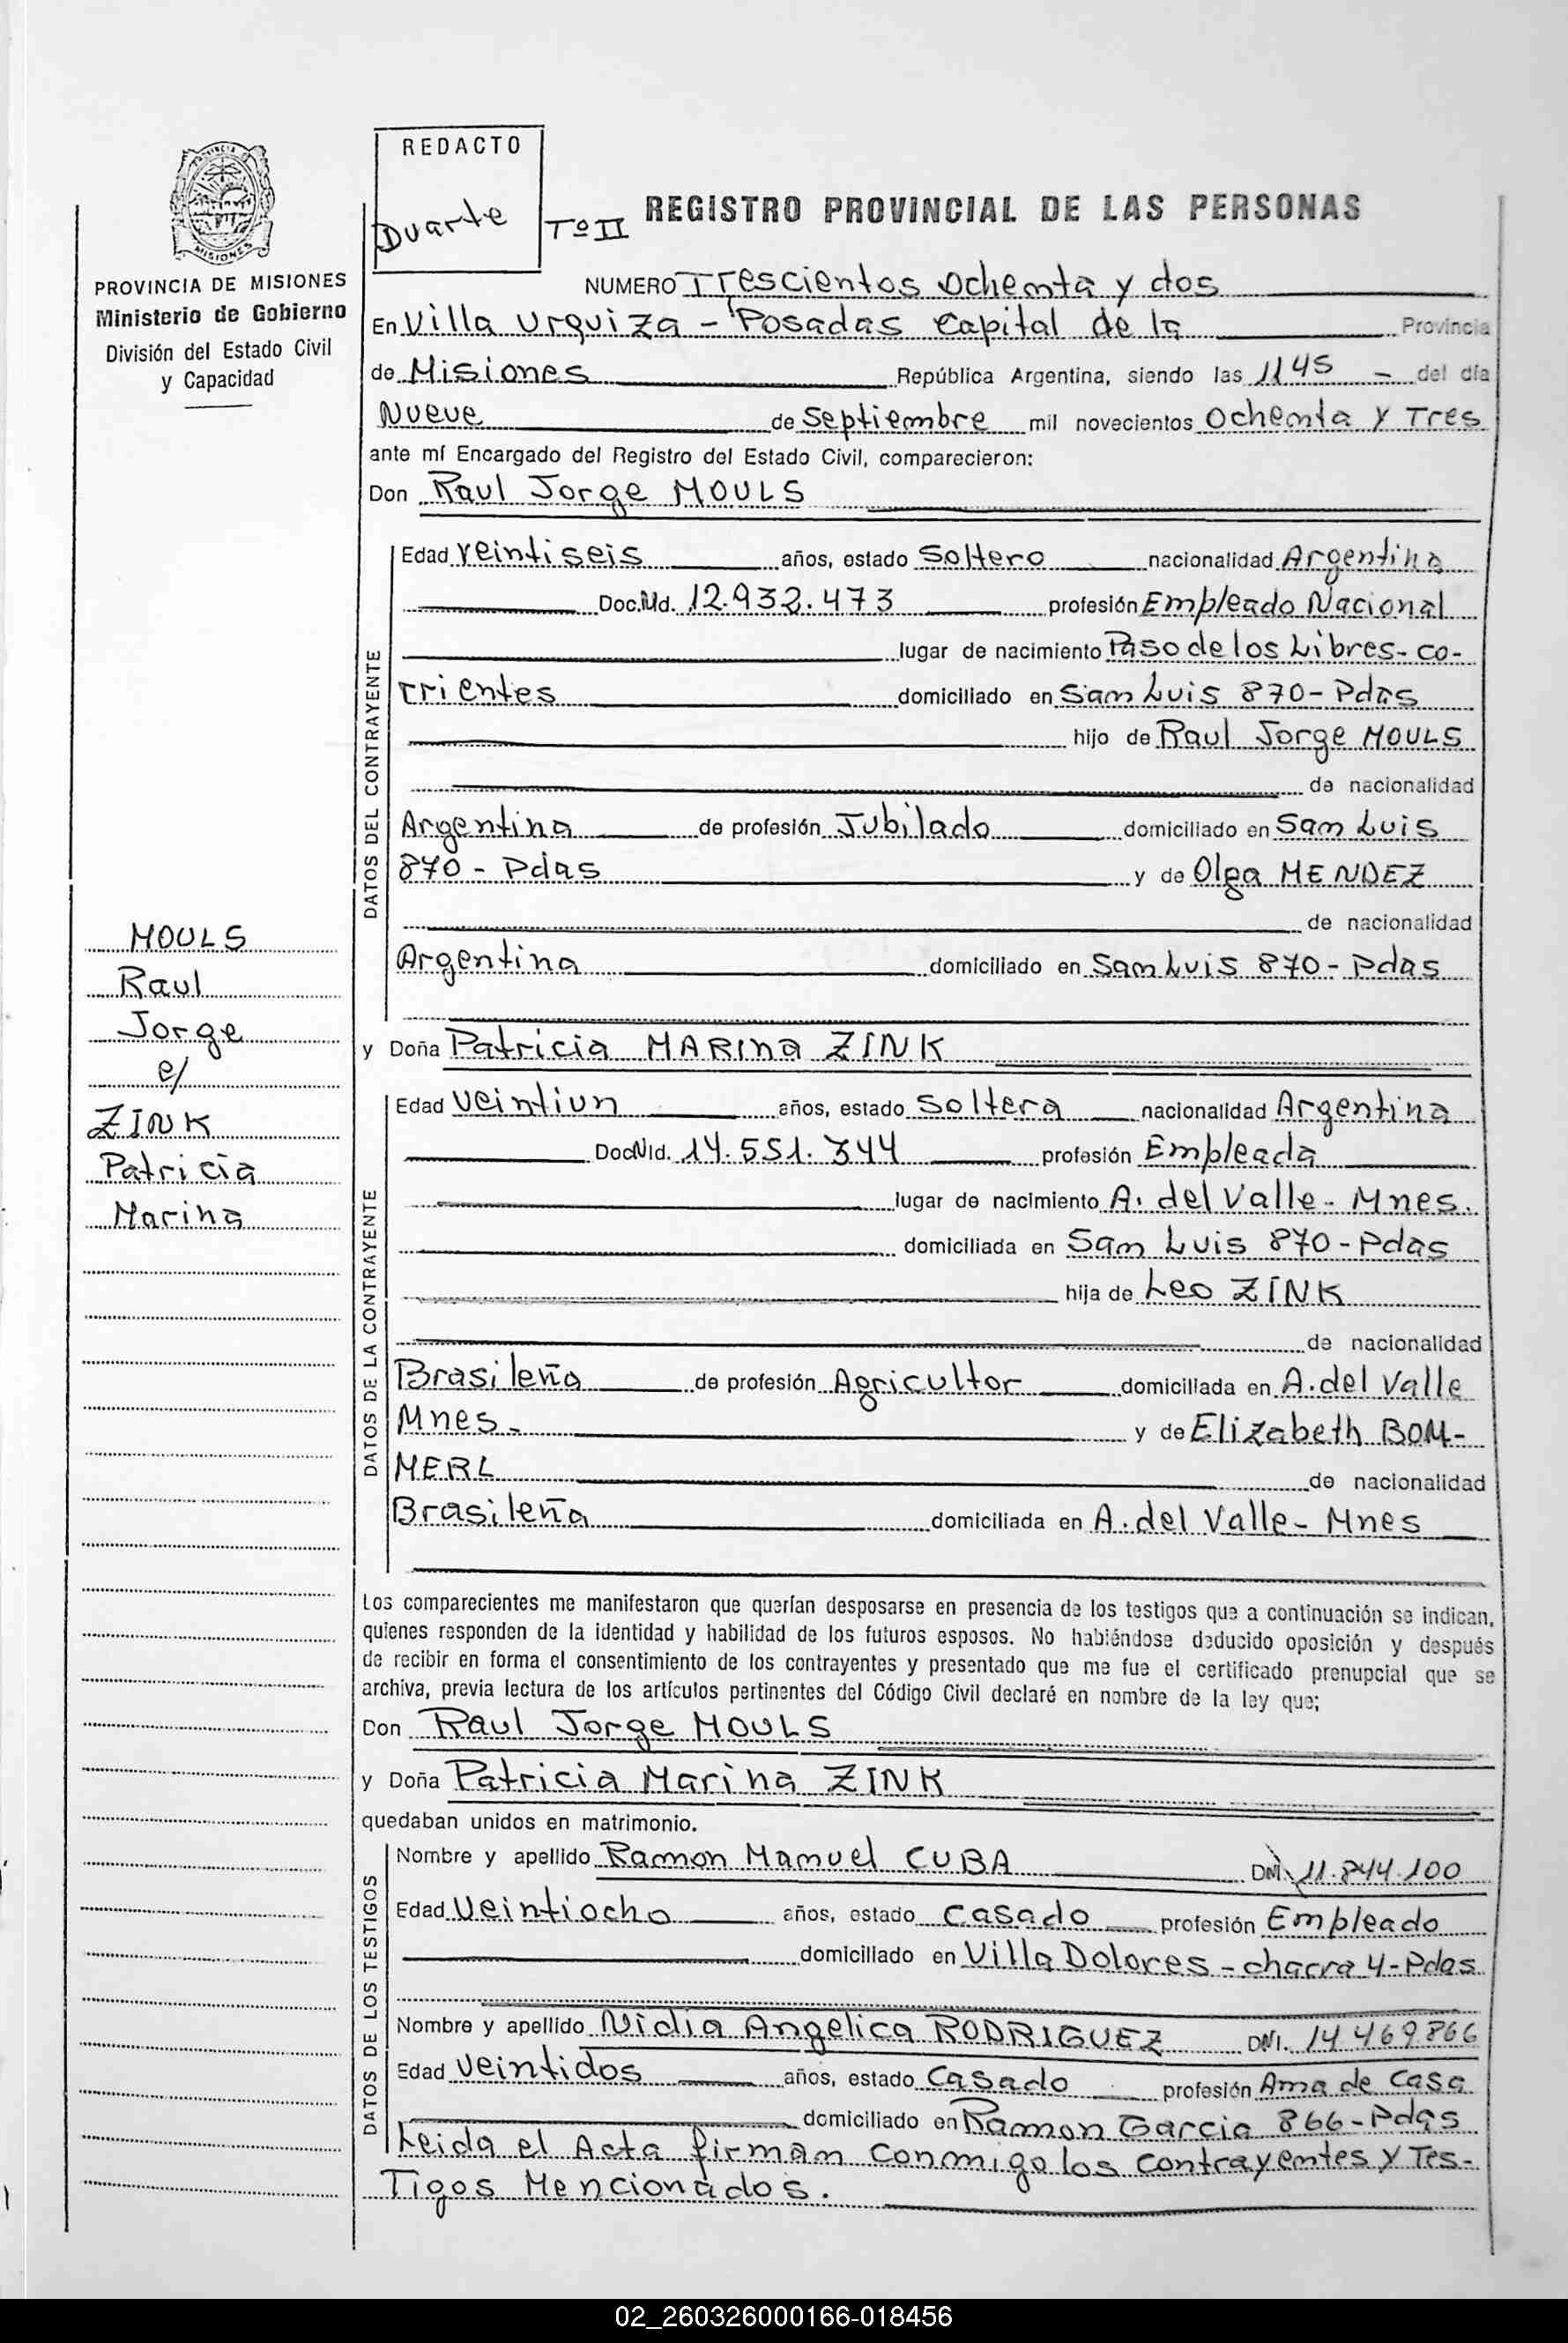 REDACTO
Duarte
Tº II
REGISTRO PROVINCIAL DE LAS PERSONAS
PROVINCIA DE MISIONES
Ministerio de Gobierno
División del Estado Civil
y Capacidad
NUMERO Trescientos Ochenta y dos
En Villa Urquiza - Posadas Capital de la Provincia
de Misiones República Argentina, siendo las 1145 - del día
Nueve de Septiembre mil novecientos Ochenta y Tres
ante mí Encargado del Registro del Estado Civil, comparecieron:
Don Raul Jorge MOULS
DATOS DEL CONTRAYENTE
Edad veintiseis años, estado Soltero nacionalidad Argentina
Doc. Nd. 12.932.473 profesión Empleado Nacional
lugar de nacimiento Paso de los Libres - Co-
rrientes domiciliado en San Luis 870 - Pdas
hijo de Raul Jorge MOULS
de nacionalidad
Argentina de profesión Jubilado domiciliado en San Luis
870 - Pdas y de Olga MENDEZ
de nacionalidad
Argentina domiciliado en San Luis 870 - Pdas
MOULS
Raul
Jorge
e/
ZINK
Patricia
Marina
y Doña Patricia MARINA ZINK
DATOS DE LA CONTRAYENTE
Edad Veintiun años, estado Soltera nacionalidad Argentina
Doc Nd. 14.551.344 profesión Empleada
lugar de nacimiento A. del Valle - Mnes.
domiciliada en San Luis 870 - Pdas
hija de Leo ZINK
de nacionalidad
Brasileña de profesión Agricultor domiciliada en A. del Valle
Mnes - y de Elizabeth BOM-
MERL de nacionalidad
Brasileña domiciliada en A. del Valle - Mnes
Los comparecientes me manifestaron que querían desposarse en presencia de los testigos que a continuación se indican,
quienes responden de la identidad y habilidad de los futuros esposos. No habiéndose deducido oposición y después
de recibir en forma el consentimiento de los contrayentes y presentado que me fue el certificado prenupcial que se
archiva, previa lectura de los artículos pertinentes del Código Civil declaré en nombre de la ley que;
Don Raul Jorge MOULS
y Doña Patricia Marina ZINK
quedaban unidos en matrimonio.
DATOS DE LOS TESTIGOS
Nombre y apellido Ramon Manuel CUBA DNI. 11.844.100
Edad Veintiocho años, estado Casado profesión Empleado
domiciliado en Villa Dolores - chacra 4 - Pdas
Nombre y apellido Nidia Angelica RODRIGUEZ DNI. 14 469 866
Edad Veintidos años, estado Casado profesión Ama de Casa
domiciliado en Ramon Garcia 866 - Pdas
Leida el Acta firman conmigo los contrayentes y Tes-
Tigos Mencionados.
02_260326000166-018456